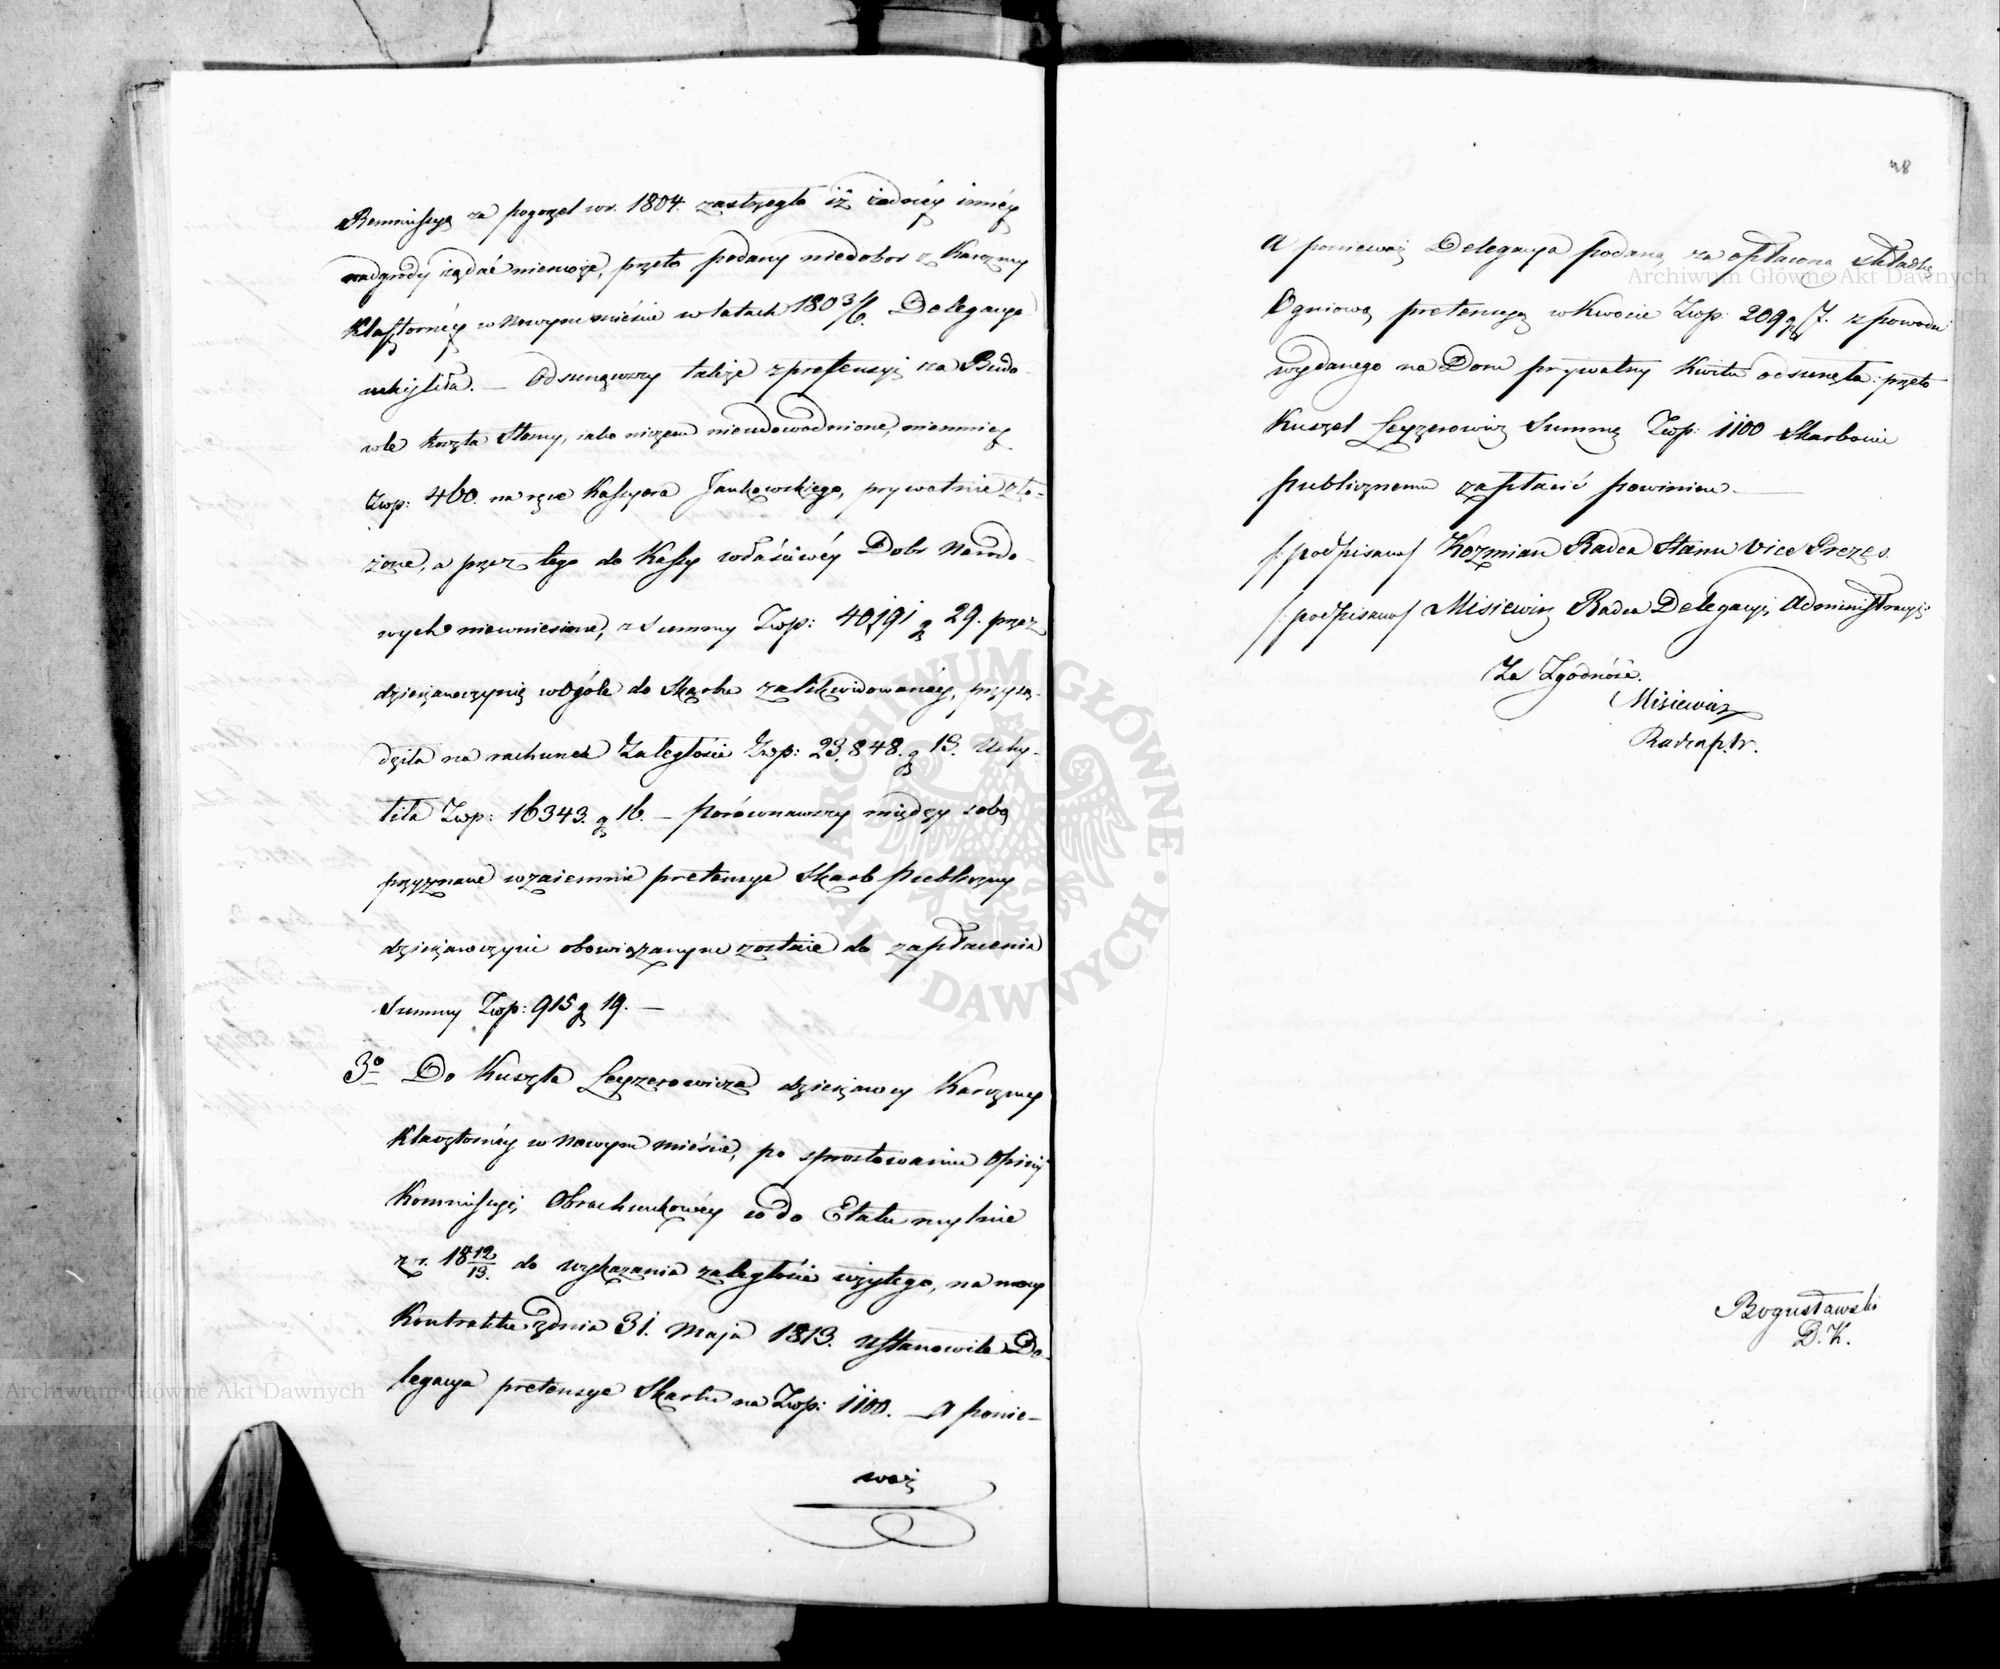 Remmissyą za pogorzel w r. 1804. zastrzegła iż żadnéy innéy
nadgrody żądać niemoże, przeto podany niedobor z Karczmy
Klasztornéy w Nowym mieście w latach 1803/6. Delegacya
uchyliła. — Odsunąwszy także z pretensyi za Budo-
wle koszta Słomy, iako niczem nieudowodnione, niemniey
Złp: 460. na ręce Kassyera Jankowskiego, prywatnie zło-
żone, a przez tego do Kassy właściwéy Dobr Narodo-
wych niewniesione, z Summy Złp: 40,191 gr 29. przez
dzierżawczynię wogóle do Skarbu zalikwidowanéy, przysą-
dziła na rachunek Zaległości Złp: 23,848. gr 13. Uchy-
liła Złp: 16343. gr 16. — Porównawszy między sobą
przyznane wzaiemnie pretensye Skarb Publiczny
dzierżawczyni obowiązanym zostaie do zapłacenia
Summy Złp: 915 gr 19. —
3o Do Kuszla Leyzerowicza dzierżawcy Karczmy
Klasztornéy w Nowym mieście, po sprostowaniu Opinij
Kommissyi Obrachunkowéy co do Etatu mylnie
z r. 1812/13. do wykazania zaległości użytego, na mocy
Kontraktu z dnia 31. Maja 1813. ustanowiła De-
legacya pretensye Skarbu na Złp: 1100. — A ponie-
waż
48
A ponieważ Delegacya podaną za opłaconą składkę
Ogniową pretensyą w kwocie Złp: 209 gr 7. z powodu
wydanego na Dom prywatny Kwitu odsunęła: przeto
Kuszel Leyzerowicz Summę Złp: 1100 Skarbowi
publicznemu zapłacić powinien. —
/: podpisano/ Kozmian Radca Stanu Vice Prezes.
/: podpisano/ Misiewicz Radca Delegacyi Administracyi:
Za Zgodność.
Misiewicz
Radca p. tr.
Bogusławski
D. K.
Archiwum Główne Akt Dawnych
Archiwum Główne Akt Dawnych
ARCHIWUM GŁÓWNE AKT DAWNYCH